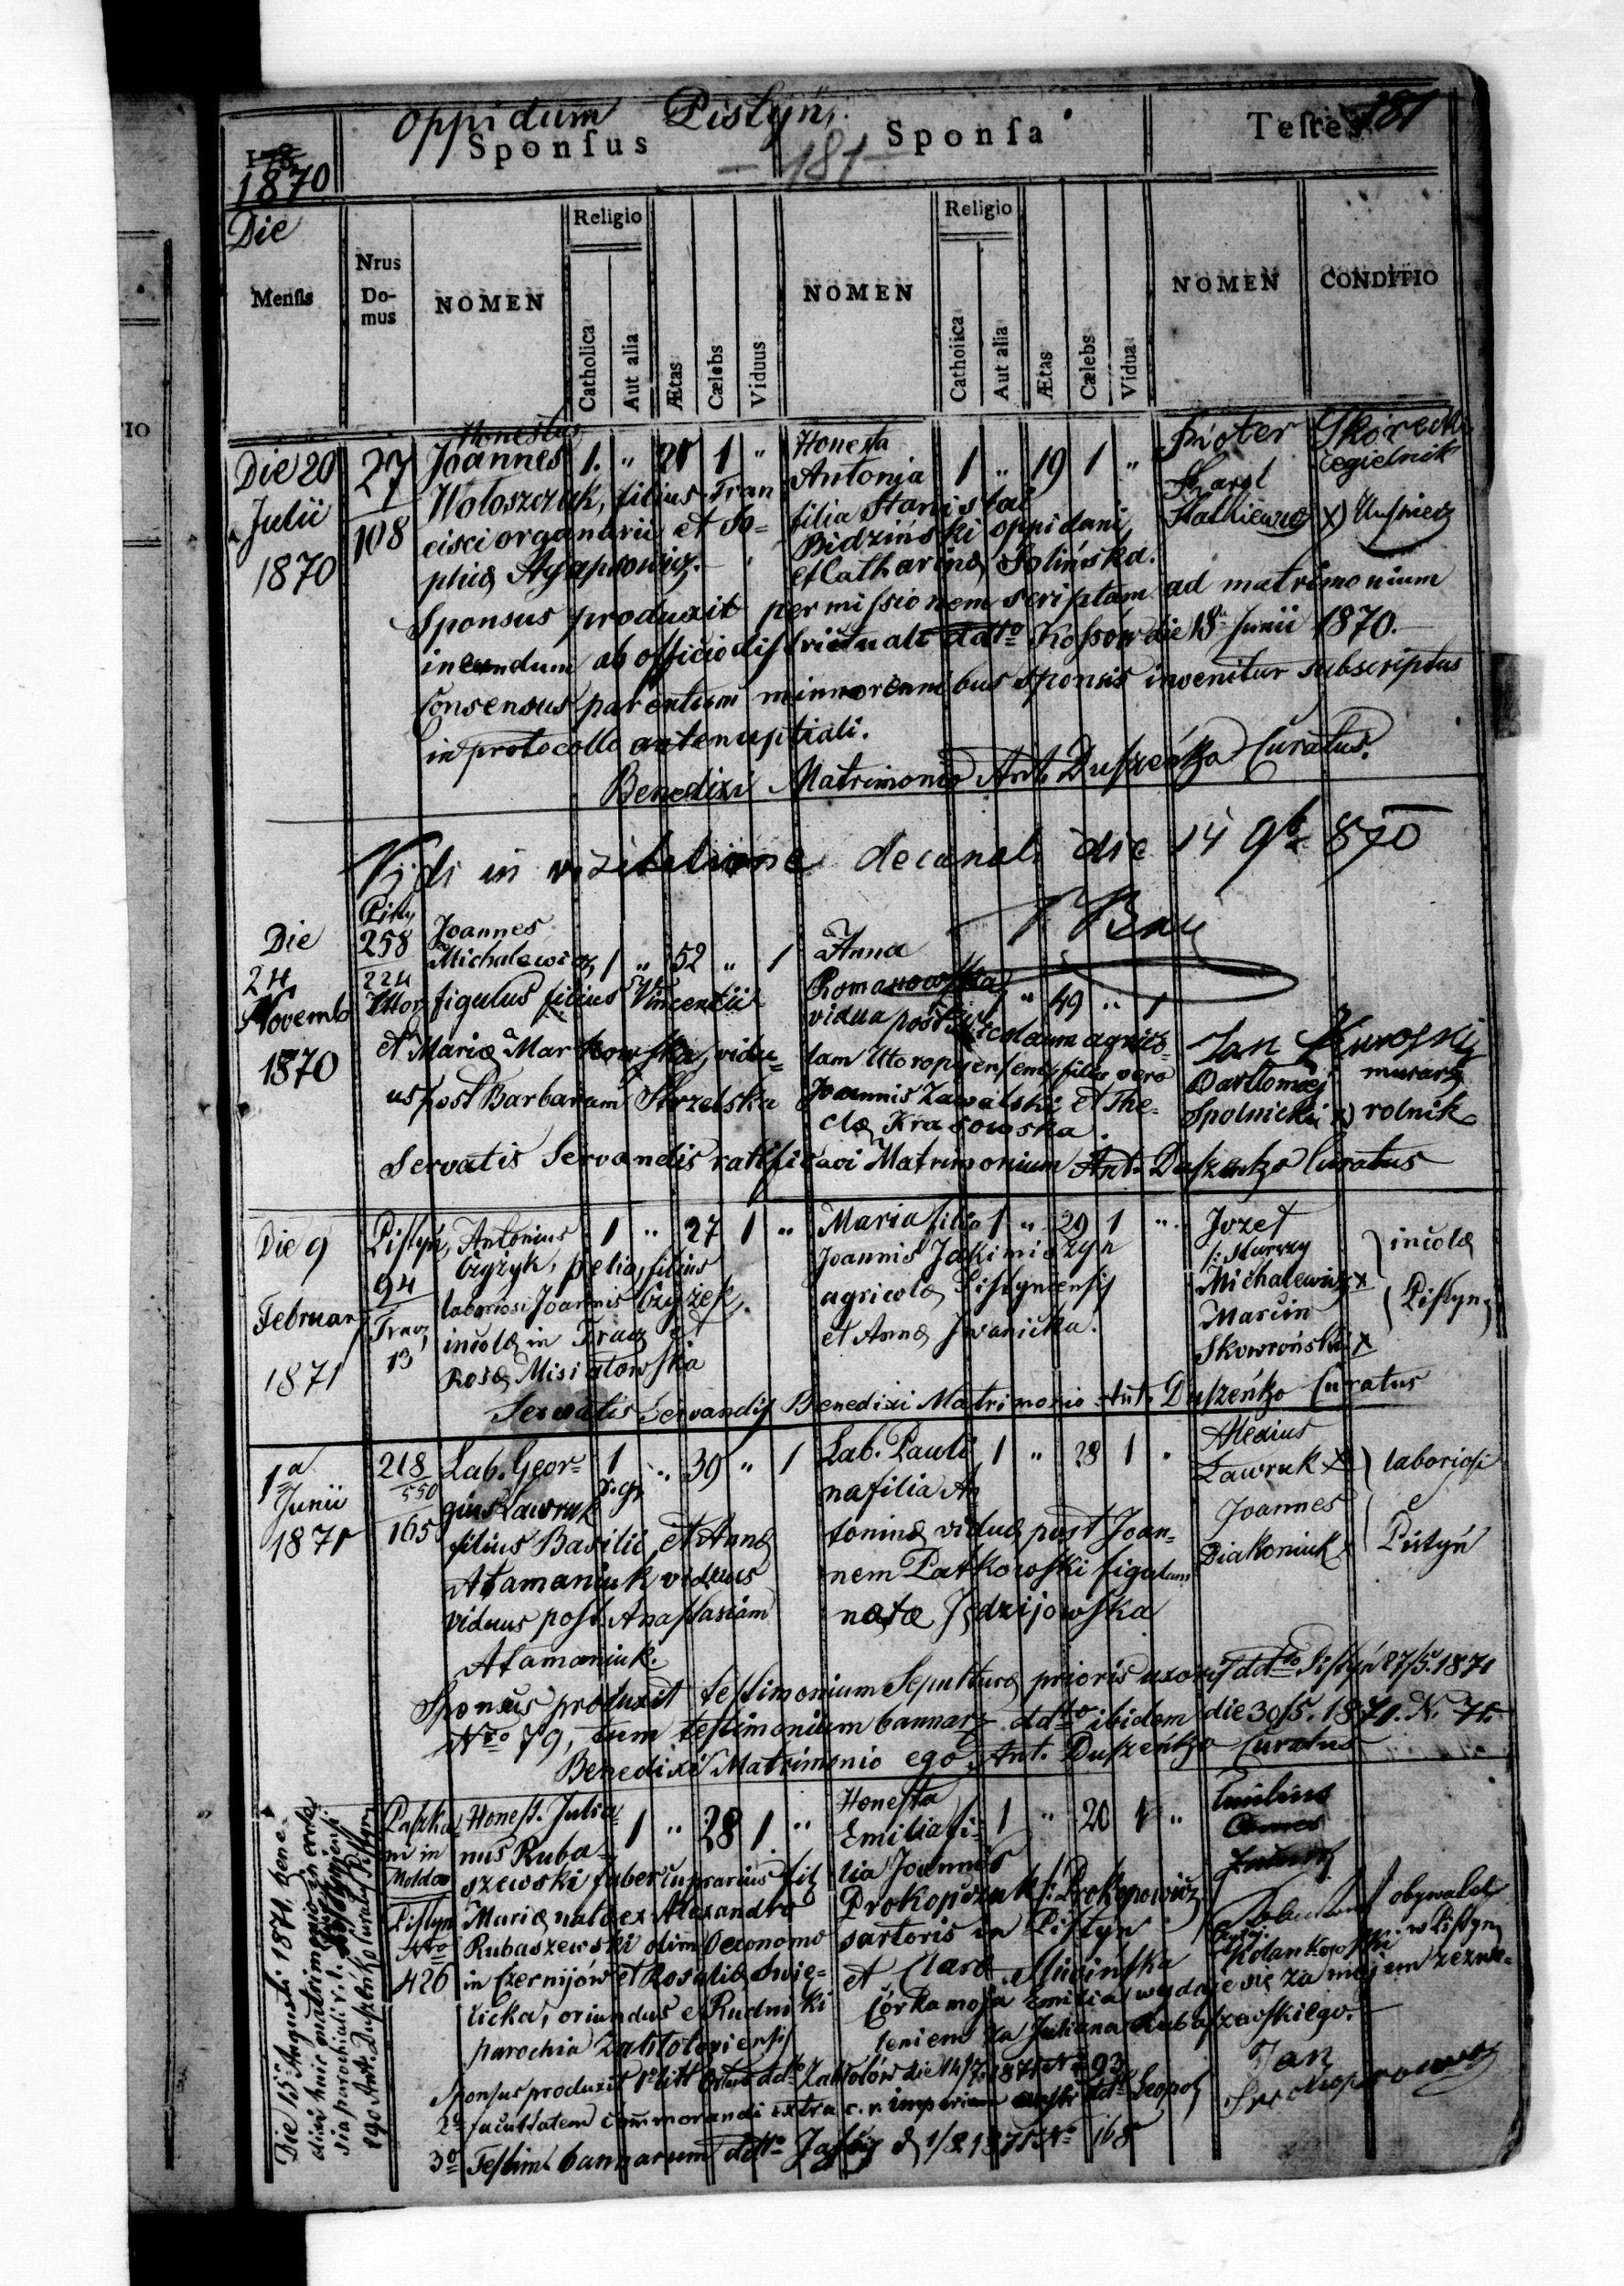 oppidum Pistyń,
181
Sponſus
Sponſa
Teſtes
1870
- 181 -
Die
Menſis
Nrus
Do-
mus
NOMEN
Religio
Catholica
Aut alia
Ætas
Cælebs
Viduus
NOMEN
Religio
Catholica
Aut alia
Ætas
Cælebs
Vidua
NOMEN
CONDITIO
Die 20
Julii
1870
27
108
Honestus
Joannes 1. " 1 "
Wołoszczuk, filius Fran
cisci organarii et So-
phiæ Agapsowicz.
Honesta
Antonia 1 " 19 1 "
filia Stanislai
Bidziński oppidani
et Catharinæ Solińska.
Piotr Skórecki
cegielnik
Karol
Sponsus produxit permiſsionem scriptam ad matrimonium
ineundum ab officio diſtrictuali ddtto Koſsow die 18 Junii 1870.
Consensus parentum minorennibus sponsis invenitur subscriptus
in protocollo antenuptiali.
Benedixi Matrimonio Ant. Duſzeńko Curatus.
Vidi in visitatione decanali die 14 9b 870
Die
24
Novemb
1870
Pisty
258
224
Uttor
Joannes
Michalewicz, 1 " 52 " 1
figulus filius Vincentii
et Mariæ Markowſka, vidu-
us post Barbaram Strzelska
Anna
Romanowſka
1 " 49 " 1
vidua post Nicolaum agrico-
lam Uttoropyensem, filia vero
Joannis Zawalski et The-
clæ Krasowska.
Jan Kuroſki
murarz
Bartłomiej
Spolnicki x) rolnik
Servatis Servandis ratificavi Matrimonium Ant. Duſzeńko Curatus
Die 9
Februar
1871
Piſtyń,
94
Tracz
13
Antonius 1 " 27 1 "
Czyżyk, pelio, filius
laboriosi Joannis Czyżyk,
incolæ in Tracz et
Rosæ Misiatowſka
Maria filia 1 " 29 1 "
Joannis Jakimiszyn
agricolæ Piſtynensis
et Annæ Iwanicka.
Jozef
Michalewicz x
Marcin
Skowroński x
incolæ
Piſtyn
Servatis Servandis Benedixi Matrimonio Ant. Duſzeńko Curatus
1a
Junii
1871
218
550
165
Lab. Geor- 1 " 39 " 1
gius Ławruk r.gr.
filius Basilii et Annæ
Atamaniuk viduus
viduus post Anaſtasiam
Atamaniuk.
Lab. Pauli 1 " 28 1 "
na filia An
toninæ viduæ post Joan-
nem Patkowſki figulum
natæ Jędzijowſka
Alexius
Ławruk x
Joannes
Diakoniuk x
laboriosi
e
Pistyń
Sponsus produxit teſtimonium Sepulturæ prioris uxoris ddtto Piſtyń 27/5. 1871
Nro 79, tum teſtimonium bannar. ddtto ibidem die 30/5. 1871. N. 71.
Benedixi Matrimonio ego Ant. Duſzeńko Curatus
Die 15 Augusti 1871. bene-
dixi huic matrimonio in eccle
sia parochiali r. l.
ego Ant. Duſzeńko Curatus Piſtyn
Paſzka-
ni in
Moldav
Piſtyn
Nro
426
Honeſt. Julia- 1 " 28 1 "
nus Ruba-
szewski faber cuprarius fil
Mariæ natæ ex Alexandro
Rubaszewski olim Oeconomo
in Czernijów et Rosaliæ Świę-
licka, oriundus e Rudniki
parochia Zabłotoviensis
Honeſta
Emilia fi- 1 " 20 1 "
lia Joannis
Prokopczuk f: Prokopowicz
sartoris in Piſtyn
et Claræ
Córka moja Emilia wydaje się za mojem zezwo-
leniem za Juliana Rubaſzewskiego.
obywatel
w Piſtyn
Jan
Prokopowicz
Sponsus produxit 1o litt ddtto Zabłotów die 14/7. 1871 No 93
2o facultatem commorandi extra c. r. imperium ddtto Leopol
3o Teſtim. bannarum ddtto Jaſsy d 1/8 1871 No 168